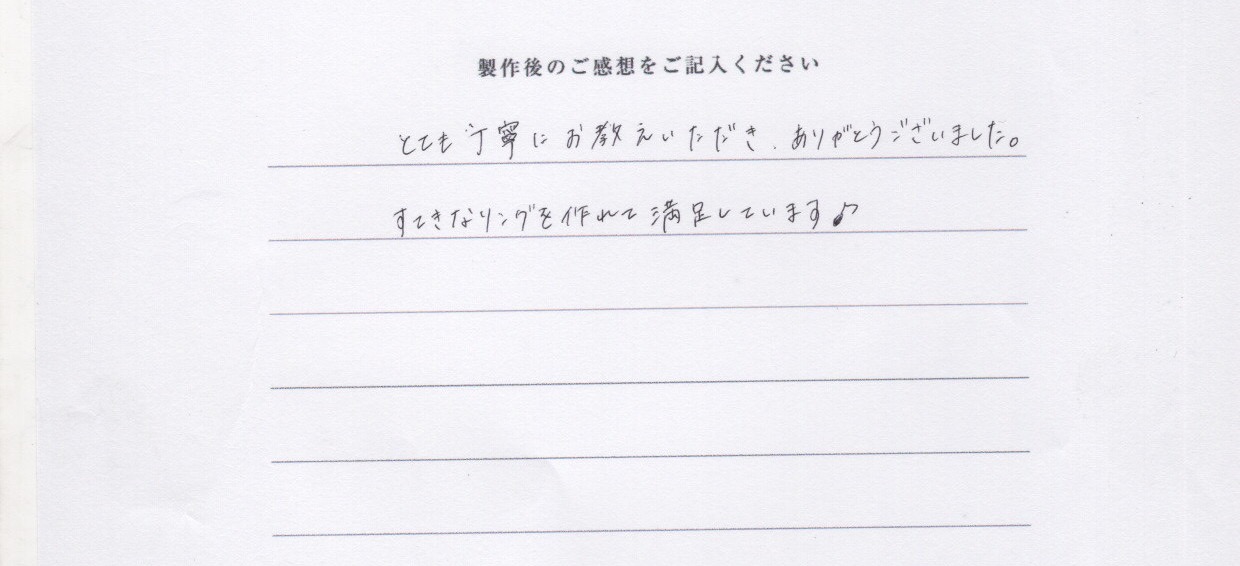 製作後のご感想をご記入ください
とても丁寧にお教えいただき、ありがとうございました。
すてきなリングを作れて満足しています♪